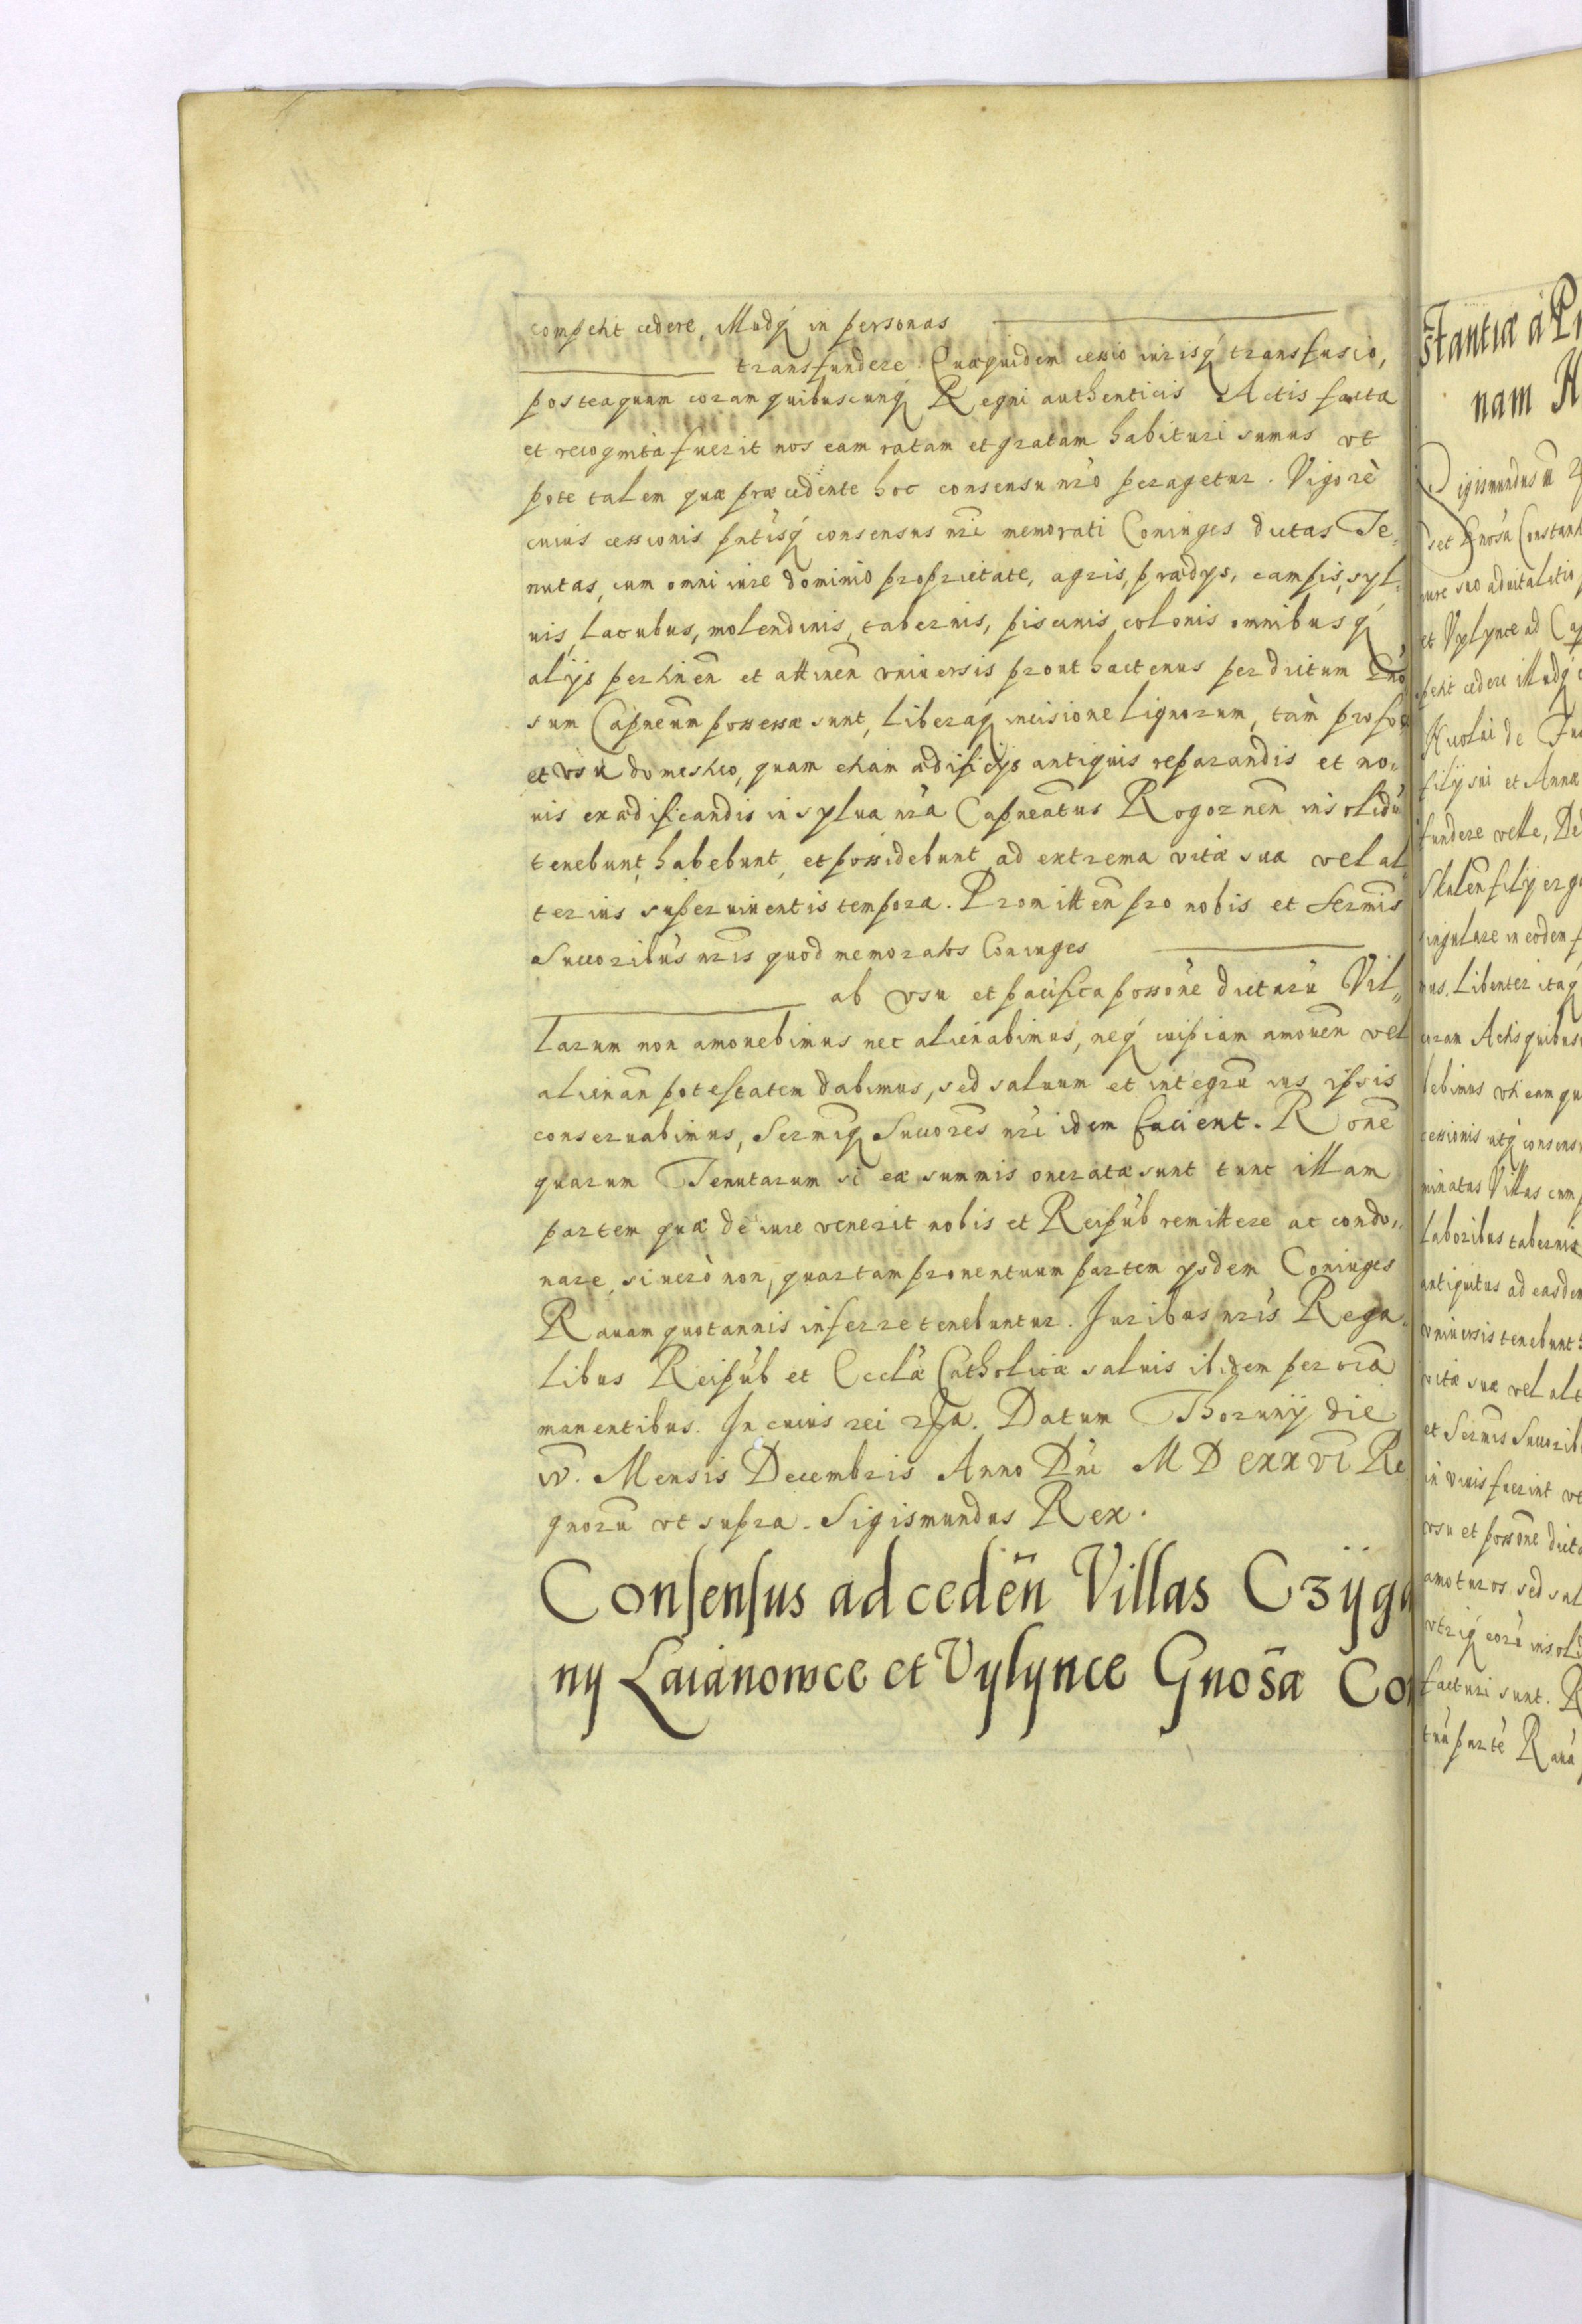 competit cedere, illudq́ in personas
transfundere. Quæquidem cessio iurisq́ transfusio,
posteaquam coram quibuscunq́ Regni authenticis Actis facta
et recognita fuerit nos eam ratam et gratam habituri sumus vt
pote talem quæ præcedente hoc consensu nr̃o peragetur. Vigorè
cuius cessionis pñtisq́ consensus nr̃i memorati Coniuges dictas Te,
nutas, cum omni iure dominio proprietate, agris, prædys, campis, syl,
uis, lacubus, molendinis, tabernis, piscinis, colonis omnibusq́
alijs pertineñ et attineñ vniuersis prout hactenus per dictum Gño
sum Capneum possessæ sunt, liberaq́ incisione lignorum, tàm pro foc
et vsu domestico, quam etiam ædificijs antiquis reparandis et no,
uis exædificandis in sylua nr̃a Capneatus Rogoznen̄ insolidū
tenebunt, habebunt, et possidebunt ad extrema vitæ suæ vel al,
terius superuiuentis tempora. Promitteñ pro nobis et Sermis̃
Succoribũs nr̃is quod memoratos Coniuges
ab vsu et pacifica possõne dictarũ Vil,,
larum non amouebimus nec alienabimus, neq́ cuipiam amoueñ vel
alienañ potestatem dabimus, sed saluum et integrũ ius ipsis
conseruabimus, Sermiq́ Succores̃ nr̃i idem facient. Rõne
quarum Tenutarum si eæ summis oneratæ sunt tunc illam
partem quæ de iure venerit nobis et Reipub̃ remittere ac condo,,
nare, si uerò non, quartam prouentuum partem ysdem Coniuges
Rauam quotannis inferre tenebuntur. Juribus nr̃is Rega,
libus Reipub̃ et Ecclæ̃ Catholicæ saluis ibidem per oĩa
manentibus. In cuius rei Datum Thorunÿ die
Mensis Decembris Anno Dñi M D CXXVI Re
gnorũ vt supra. Sigismundus Rex.
Consensus ad cedeñ Villas Czÿga
ny Laianowce et Vylynce Gnosæ̃ Con
stantiæ à Pr
nam H
igismundus
set Gnosa Constant
iure suo aduitalitio
et Vylynce ad Cap
petit cedere illudq́
Nicolai de
filij sui et Annæ
fundere velle,
filij erg
singulare in eodem
mus. Libenter itaq́
coram Actis quibus
bebimus vti eam qu
cessionis
minatas Villas cum
laboribus tabernis
antiquitus ad easdem
vniuersis tenebunt
vitæ suæ vel alt
et Sermis̃ Succorib
in viuis fuerint vt
vsu et possõne dicta
amoturos sed sal
vtriq́ eorũ insoli
facturi sunt. R
tam partẽ Rauã